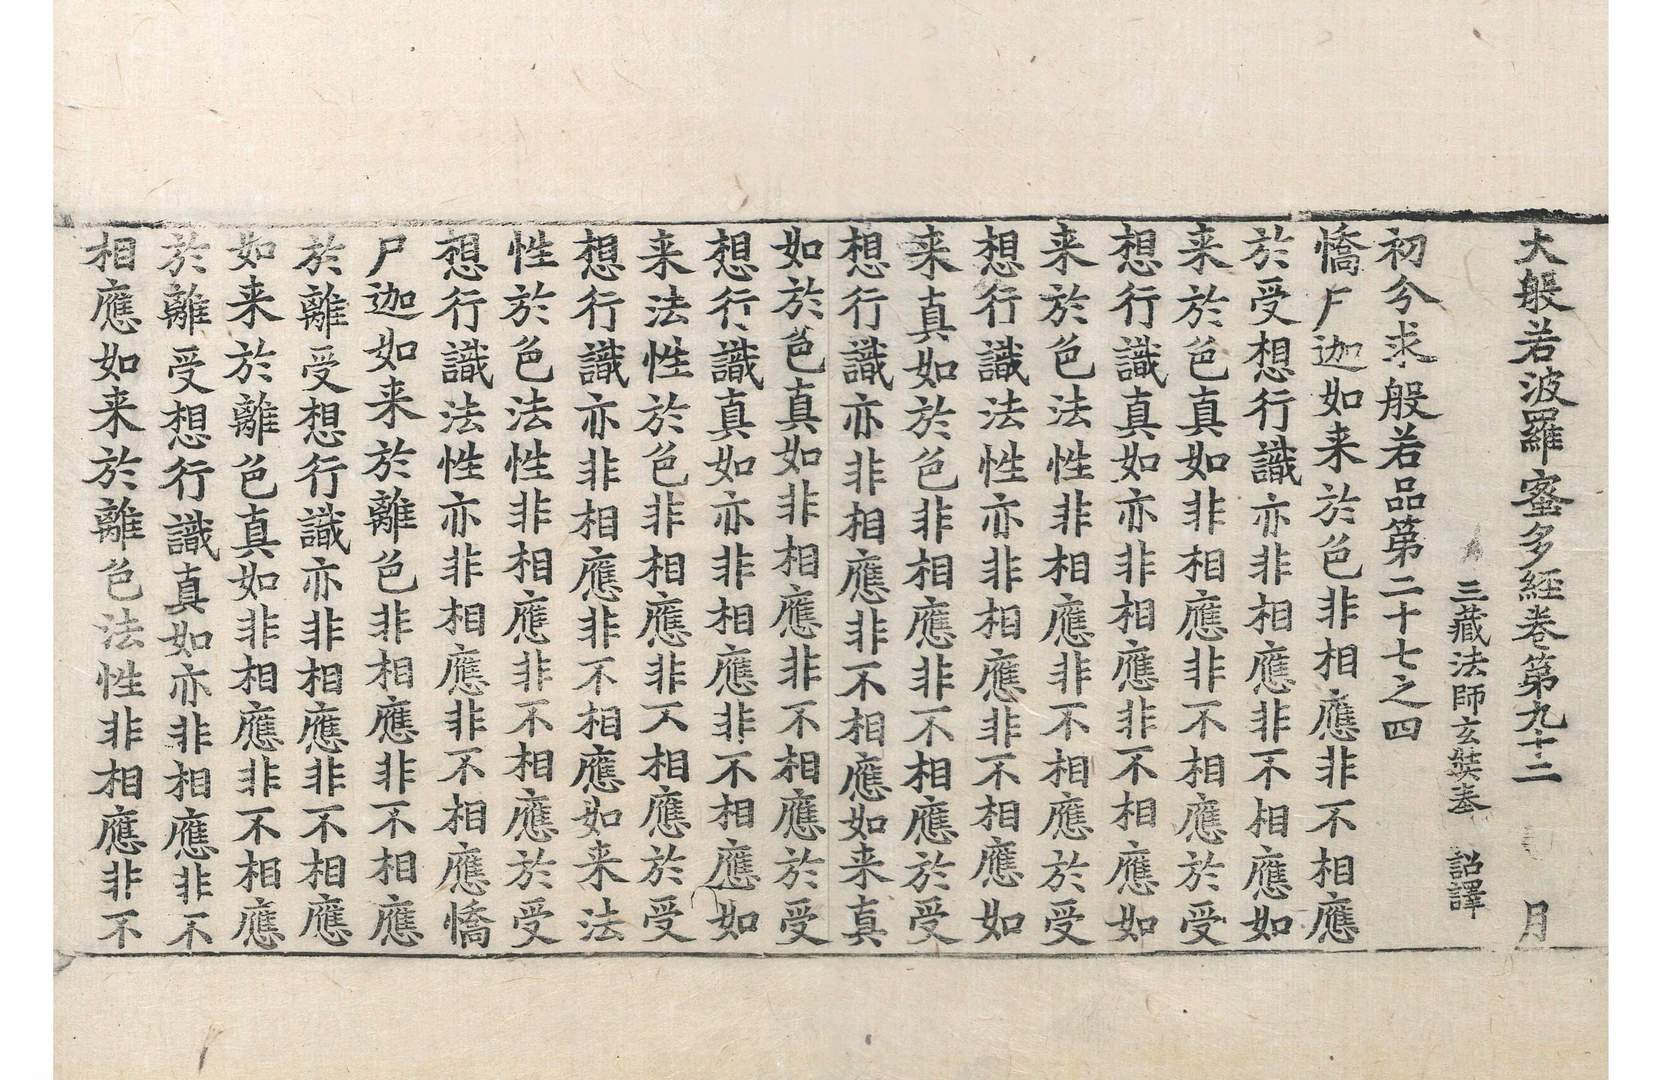 大般若波羅蜜多經卷第九十二 月
三藏法師玄奘奉 詔譯
初分求般若品第二十七之四
憍尸迦如来於色非相應非不相應
於受想行識亦非相應非不相應如
来於色真如非相應非不相應於受
想行識真如亦非相應非不相應如
来於色法性非相應非不相應於受
想行識法性亦非相應非不相應如
来真如於色非相應非不相應於受
想行識亦非相應非不相應如来真
如於色真如非相應非不相應於受
想行識真如亦非相應非不相應如
来法性於色非相應非不相應於受
想行識亦非相應非不相應如来法
性於色法性非相應非不相應於受
想行識法性亦非相應非不相應憍
尸迦如来於離色非相應非不相應
於離受想行識亦非相應非不相應
如来於離色真如非相應非不相應
於離受想行識真如亦非相應非不
相應如来於離色法性非相應非不